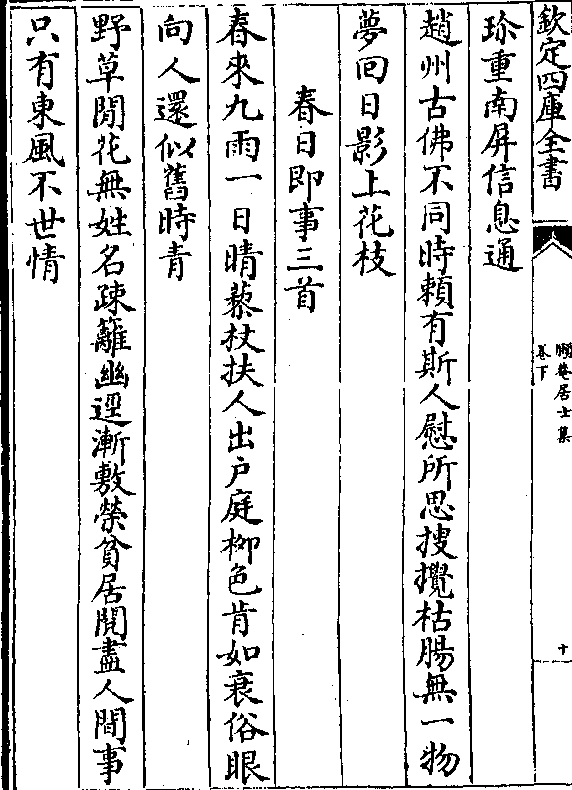 欽定四庫全書
懶菴居士集
卷下
十
珍重南屏信息通
趙州古佛不同時賴有斯人慰所思搜攪枯腸無一物
夢回日影上花枝
春日即事三首
春來九雨一日晴藜杖扶人出户庭柳色肯如衰俗眼
向人還似舊時青
野草閒花無姓名疎籬幽逕漸敷榮貧居閱盡人間事
只有東風不世情